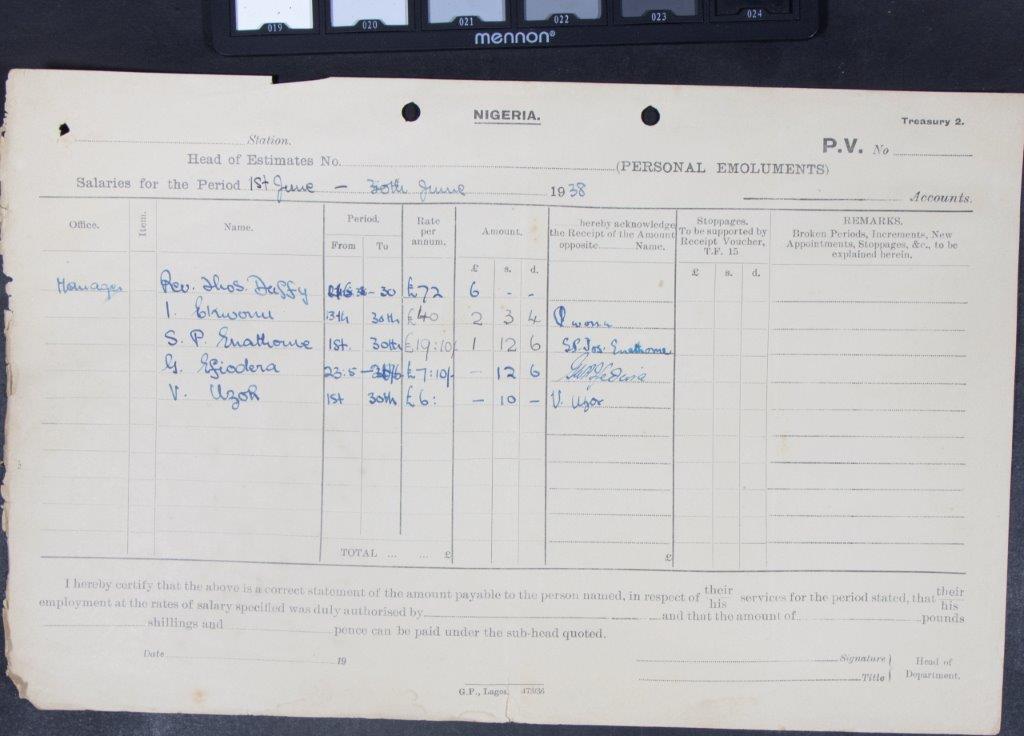 019 020 021 022 023 024
mennon®
NIGERIA.
Treasury 2.
Station.
P.V. No
Head of Estimates No. (PERSONAL EMOLUMENTS)
Salaries for the Period 1st June — 30th June 1938
Accounts.
Office. Item. Name. Period. From To Rate per annum. Amount. £ s. d. hereby acknowledge the Receipt of the Amount opposite Name. Stoppages. To be supported by Receipt Voucher, T.F. 15 £ s. d. REMARKS. Broken Periods, Increments, New Appointments, Stoppages, &c., to be explained herein.
Manager Rev. Thos. Duffy - 30 £72 6 - -
I. 30th £40 2 3 4
S. P. Enathome 1st. 30th £19:10/- 1 12 6 S.P. Jos. Enathome
G. 23.5 - £7:10/- - 12 6
V. Uzor 1st 30th £6: - 10 - V. Uzor
TOTAL ... ... £ £
I hereby certify that the above is a correct statement of the amount payable to the person named, in respect of their/his services for the period stated, that their/his
employment at the rates of salary specified was duly authorised by and that the amount of pounds
shillings and pence can be paid under the sub-head quoted.
Date 19
Signature } Head of
Title } Department.
G.P., Lagos.